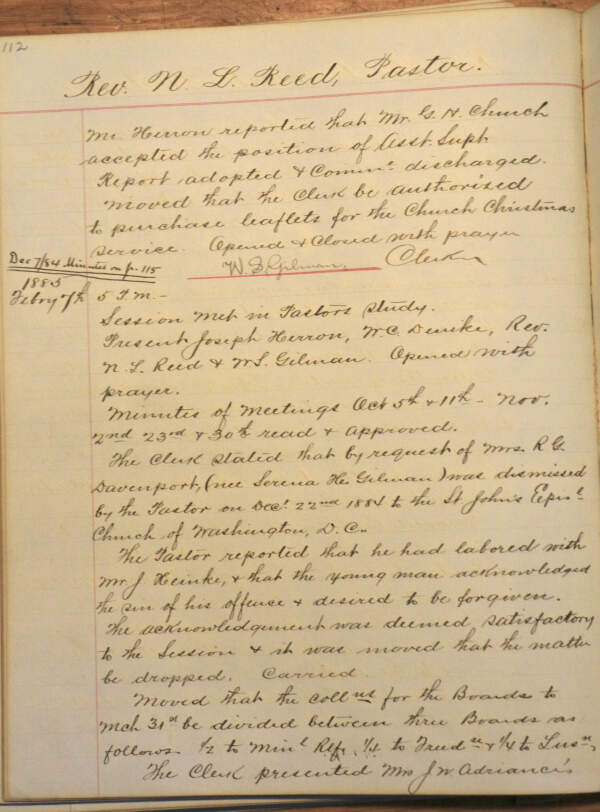 112
Rev. N. L. Reed, Pastor.
Mr Herron reported that Mr. G. H. Church
accepted the position of Asst. Supt.
Report adopted & Commte discharged.
Moved that the Clerk be authorised
to purchase leaflets for the Church Christmas
service. Opened & Closed with prayer
W. S. Gilman, Clerk
Dec 7/84 Minutes on p. 115
1885
Febry 7th 5 P.M. -
Session met in Pastors Study.
Present Joseph Herron, W.C. Denike, Rev.
N. L. Reed & W.S. Gilman. Opened with
prayer.
Minutes of Meetings Oct 5th & 11th - Nov.
2nd 23rd & 30th read & approved.
The Clerk stated that by request of Mrs. R G.
Davenport, (nee Serena H. Gilman) was dismissed
by the Pastor on Decr 22nd 1884 to the St. John's Episl
Church of Washington, D.C.
The Pastor reported that he had labored with
Mr J Heinke, & that the young man acknowledged
the sin of his offense & desired to be forgiven.
The acknowledgement was deemed satisfactory
to the Session & it was moved that the matter
be dropped. Carried
Moved that the collns for the Boards to
Mch 31st be divided between three Boards as
follows. 1/2 to Minl Relf, 1/4 to Freedn & 1/4 to Susn.
The Clerk presented Mrs J. W. Adriance's